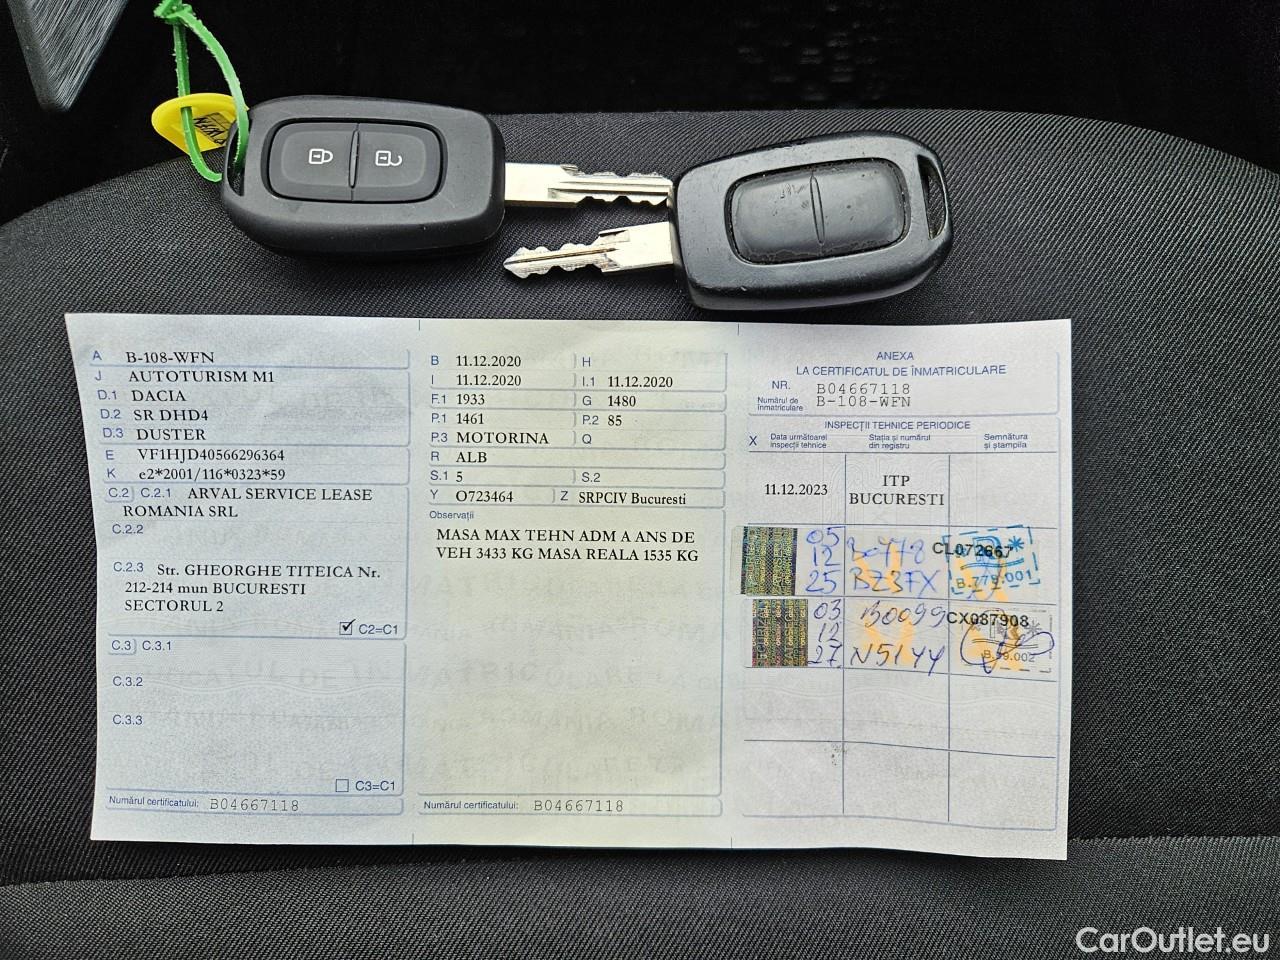 A B-108-WFN
J AUTOTURISM M1
D.1 DACIA
D.2 SR DHD4
D.3 DUSTER
E VF1HJD40566296364
K e2*2001/116*0323*59
C.2 C.2.1 ARVAL SERVICE LEASE
ROMANIA SRL
C.2.2
C.2.3 Str. GHEORGHE TITEICA Nr.
212-214 mun BUCURESTI
SECTORUL 2
C2=C1
C.3 C.3.1
C.3.2
C.3.3
C3=C1
Numărul certificatului: B04667118
B 11.12.2020 H
I 11.12.2020 I.1 11.12.2020
F.1 1933 G 1480
P.1 1461 P.2 85
P.3 MOTORINA Q
R ALB
S.1 5 S.2
Y O723464 Z SRPCIV Bucuresti
Observații
MASA MAX TEHN ADM A ANS DE
VEH 3433 KG MASA REALA 1535 KG
Numărul certificatului: B04667118
ANEXA
LA CERTIFICATUL DE ÎNMATRICULARE
NR. B04667118
Numărul de
înmatriculare B-108-WFN
INSPECȚII TEHNICE PERIODICE
X Data următoarei
inspecții tehnice
Stația și numărul
din registru
Semnătura
și ștampila
11.12.2023
ITP
BUCURESTI
05
12
25
BZ37X
CL072667
B.778.001
03
12
27
B0099
N5144
CX087908
B.99.002
CarOutlet.eu